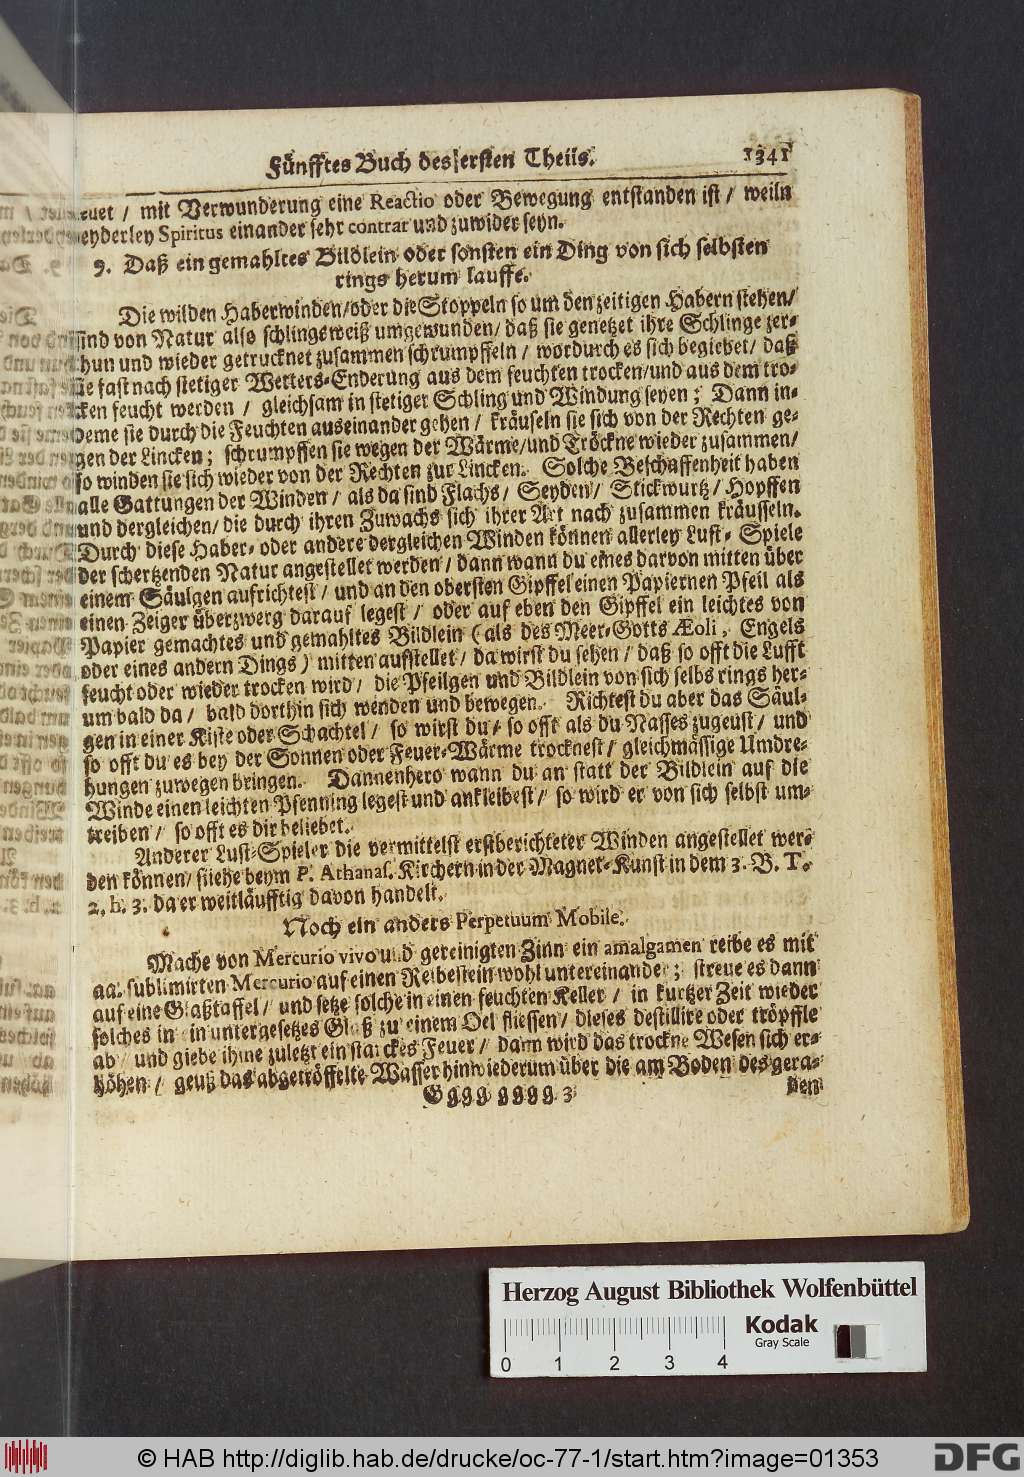 Fünfftes Buch des ersten Theils. 1341
euet / mit Verwunderung eine Reactio oder Bewegung entstanden ist / weiln
eyderley Spiritus einander sehr contrar und zuwider seyn.
9. Daß ein gemahltes Bildlein oder sonsten ein Ding von sich selbsten
rings herum lauffe.
Die wilden Haberwinden/oder die Stoppeln so um den zeitigen Habern stehen/
sind von Natur also schlingsweiß umgewunden/ daß sie genetzet ihre Schlinge zer-
thun und wieder getrucknet zusammen schrumpffeln / wordurch es sich begiebet/ daß
sie fast nach stetiger Wetters-Enderung aus dem feuchten trocken/und aus dem tro-
cken feucht werden / gleichsam in stetiger Schling und Windung seyen; Dann in-
deme sie durch die Feuchten auseinander gehen / kräuseln sie sich von der Rechten ge-
gen der Lincken; schrumpffen sie wegen der Wärme/und Tröckne wieder zusammen/
so winden sie sich wieder von der Rechten zur Lincken. Solche Beschaffenheit haben
alle Gattungen der Winden / als da sind Flachs/ Seyden/ Stickwurtz/ Hopffen
und dergleichen/ die durch ihren Zuwachs sich ihrer Art nach zusammen kräusseln.
Durch diese Haber- oder andere dergleichen Winden können allerley Lust- Spiele
der schertzenden Natur angestellet werden/ dann wann du eines darvon mitten über
einem Säulgen aufrichtest / und an den obersten Gipffel einen Papiernen Pfeil als
einen Zeiger überzwerg darauf legest / oder auf eben den Gipffel ein leichtes von
Papier gemachtes und gemahltes Bildlein (als des Meer-Gotts Æoli, Engels
oder eines andern Dings) mitten aufstellet/ da wirst du sehen/ daß so offt die Lufft
feucht oder wieder trocken wird/ die Pfeilgen und Bildlein von sich selbs rings her-
um bald da/ bald dorthin sich wenden und bewegen. Richtest du aber das Säul-
gen in einer Kiste oder Schachtel / so wirst du / so offt als du Nasses zugeust / und
so offt du es bey der Sonnen oder Feuer-Wärme trocknest/ gleichmässige Umdre-
hungen zuwegen bringen. Dannenhero wann du an statt der Bildlein auf die
Winde einen leichten Pfenning legest und ankleibest/ so wird er von sich selbst um-
treiben / so offt es dir beliebet.
Anderer Lust-Spieler die vermittelst erstberichteter Winden angestellet wer-
den können/ siehe beym P. Athanas. Kirchern in der Magnet-Kunst in dem 3. B. T.
2. h. 3. da er weitläufftig davon handelt.
Noch ein anders Perpetuum Mobile.
Mache von Mercurio vivo und gereinigten Zinn ein amalgamen reibe es mit
aa. sublimirten Mercurio auf einen Reibestein wohl untereinander; streue es dann
auf eine Glaßtaffel/ und setze solche in einen feuchten Keller / in kurtzer Zeit wieder
solches in ein untergesetzes Glaß zu einem Oel fliessen/ dieses destillire oder tröpffle
ab / und giebe ihme zuletzt ein starckes Feuer/ dann wird das trockne Wesen sich er-
höhen / geuß das abgetröffelte Wasser hinwiederum über die am Boden des gera-
Gggg gggg 3 den
Herzog August Bibliothek Wolfenbüttel
Kodak
Gray Scale
0 1 2 3 4
© HAB http://diglib.hab.de/drucke/oc-77-1/start.htm?image=01353
DFG